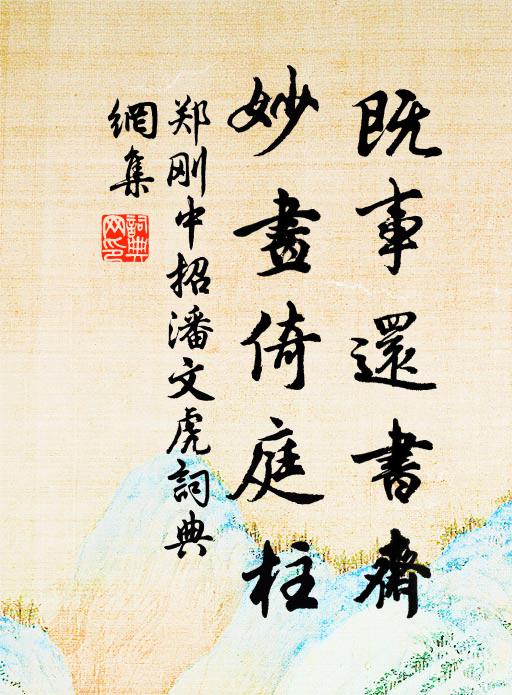 既事還書齋
妙畫倚庭柱
郑刚中招潘文虎詞典
網集
詞典
网印